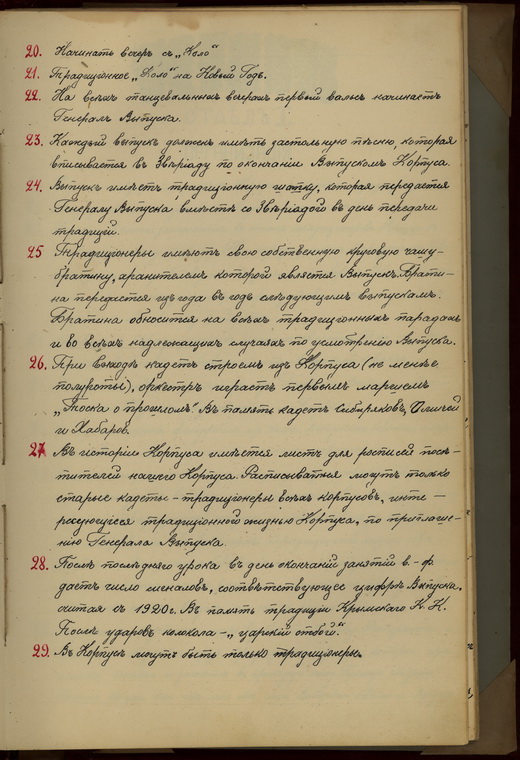 20. Начинать вечеръ съ „Коло“
21. Традиціонное „Коло“ на Новый Годъ.
22. На всѣхъ танцевальныхъ вечерахъ первый вальсъ начинаетъ
Генералъ Выпуска.
23. Каждый выпускъ долженъ имѣть застольную пѣсню, которая
вписывается въ Звѣріаду по окончаніи Выпускомъ Корпуса.
24. Выпускъ имѣетъ традиціонную шапку, которая передается
Генералу Выпуска вмѣстѣ со Звѣріадого въ день передачи
традицій.
25 Традиціонеры имѣютъ свою собственную круговую чашу-
братину, хранителемъ которой является Выпускъ. Брати-
на передается изъ года въ годъ слѣдующимъ выпускамъ.
Братина обносится на всѣхъ традиціонныхъ парадахъ
и во всѣхъ надлежащихъ случаяхъ по усмотрѣнію Выпуска.
26. При выходѣ кадетъ строемъ изъ Корпуса (не менѣе
полуроты), оркестръ играетъ первымъ маршемъ
„Тоска о прошломъ“. Въ память кадетъ Сибиряковъ, Иличей
и Хабаров.
27. Въ исторіи Корпуса имѣется листъ для росписей посѣ-
тителей нашего Корпуса. Расписываться могутъ только
старые кадеты - традиціонеры всѣхъ корпусовъ, инте-
ресующіеся традиціонного жизнью Корпуса, по приглаше-
нію Генерала Выпуска.
28. Послѣ послѣдняго урока въ день окончанія занятій в.-ф.
даетъ число сигналовъ, соотвѣтствующее цыфрѣ Выпуска,
считая съ 1920г. Въ память традиціи Крымскаго К. К.
Послѣ ударовъ колокола - „царскій отбой.“
29. Въ Корпусѣ могутъ быть только традиціонеры.